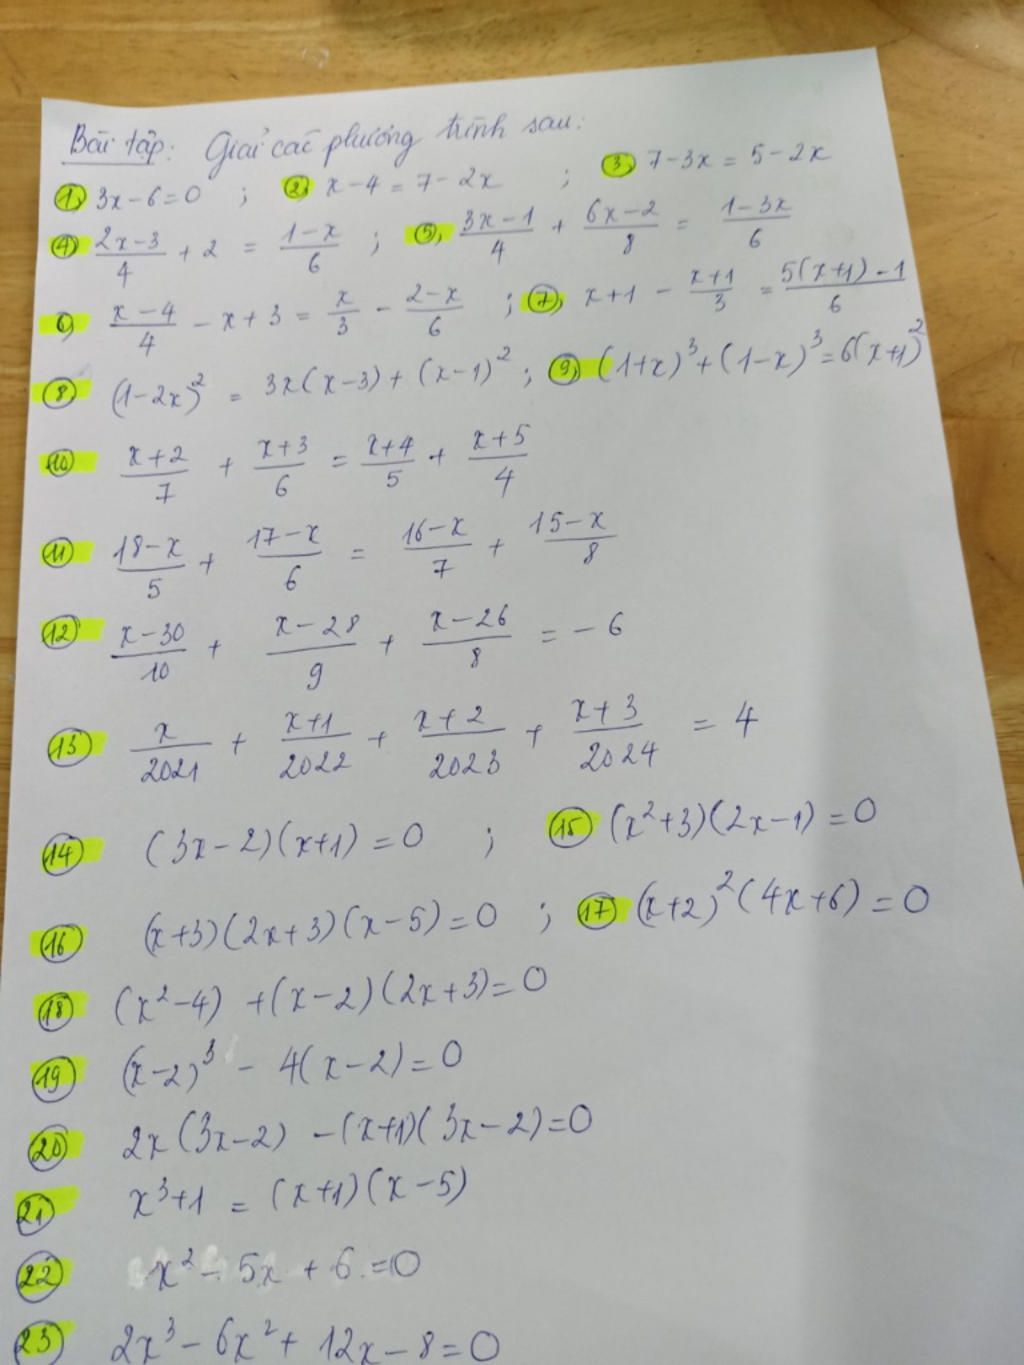 Bài tập: Giải các phương trình sau:
1) 3x-6=0 ; 2) x-4=7-2x ; 3) 7-3x=5-2x
4) \frac{2x-3}{4} + 2 = \frac{1-x}{6} ; 5) \frac{3x-1}{4} + \frac{6x-2}{8} = \frac{1-3x}{6}
6) \frac{x-4}{4} - x + 3 = \frac{x}{3} - \frac{2-x}{6} ; 7) x+1 - \frac{x+1}{3} = \frac{5(x+1)-1}{6}
8) (1-2x)² = 3x(x-3) + (x-1)² ; 9) (1+x)³+(1-x)³=6(x+1)²
10) \frac{x+2}{7} + \frac{x+3}{6} = \frac{x+4}{5} + \frac{x+5}{4}
11) \frac{18-x}{5} + \frac{17-x}{6} = \frac{16-x}{7} + \frac{15-x}{8}
12) \frac{x-30}{10} + \frac{x-28}{9} + \frac{x-26}{8} = -6
13) \frac{x}{2021} + \frac{x+1}{2022} + \frac{x+2}{2023} + \frac{x+3}{2024} = 4
14) (3x-2)(x+1)=0 ; 15) (x²+3)(2x-1)=0
16) (x+3)(2x+3)(x-5)=0 ; 17) (x+2)²(4x+6)=0
18) (x²-4) +(x-2)(2x+3)=0
19) (x-2)³ - 4(x-2)=0
20) 2x(3x-2) -(x+1)(3x-2)=0
21) x³+1 = (x+1)(x-5)
22) x²-5x+6=0
23) 2x³-6x²+12x-8=0